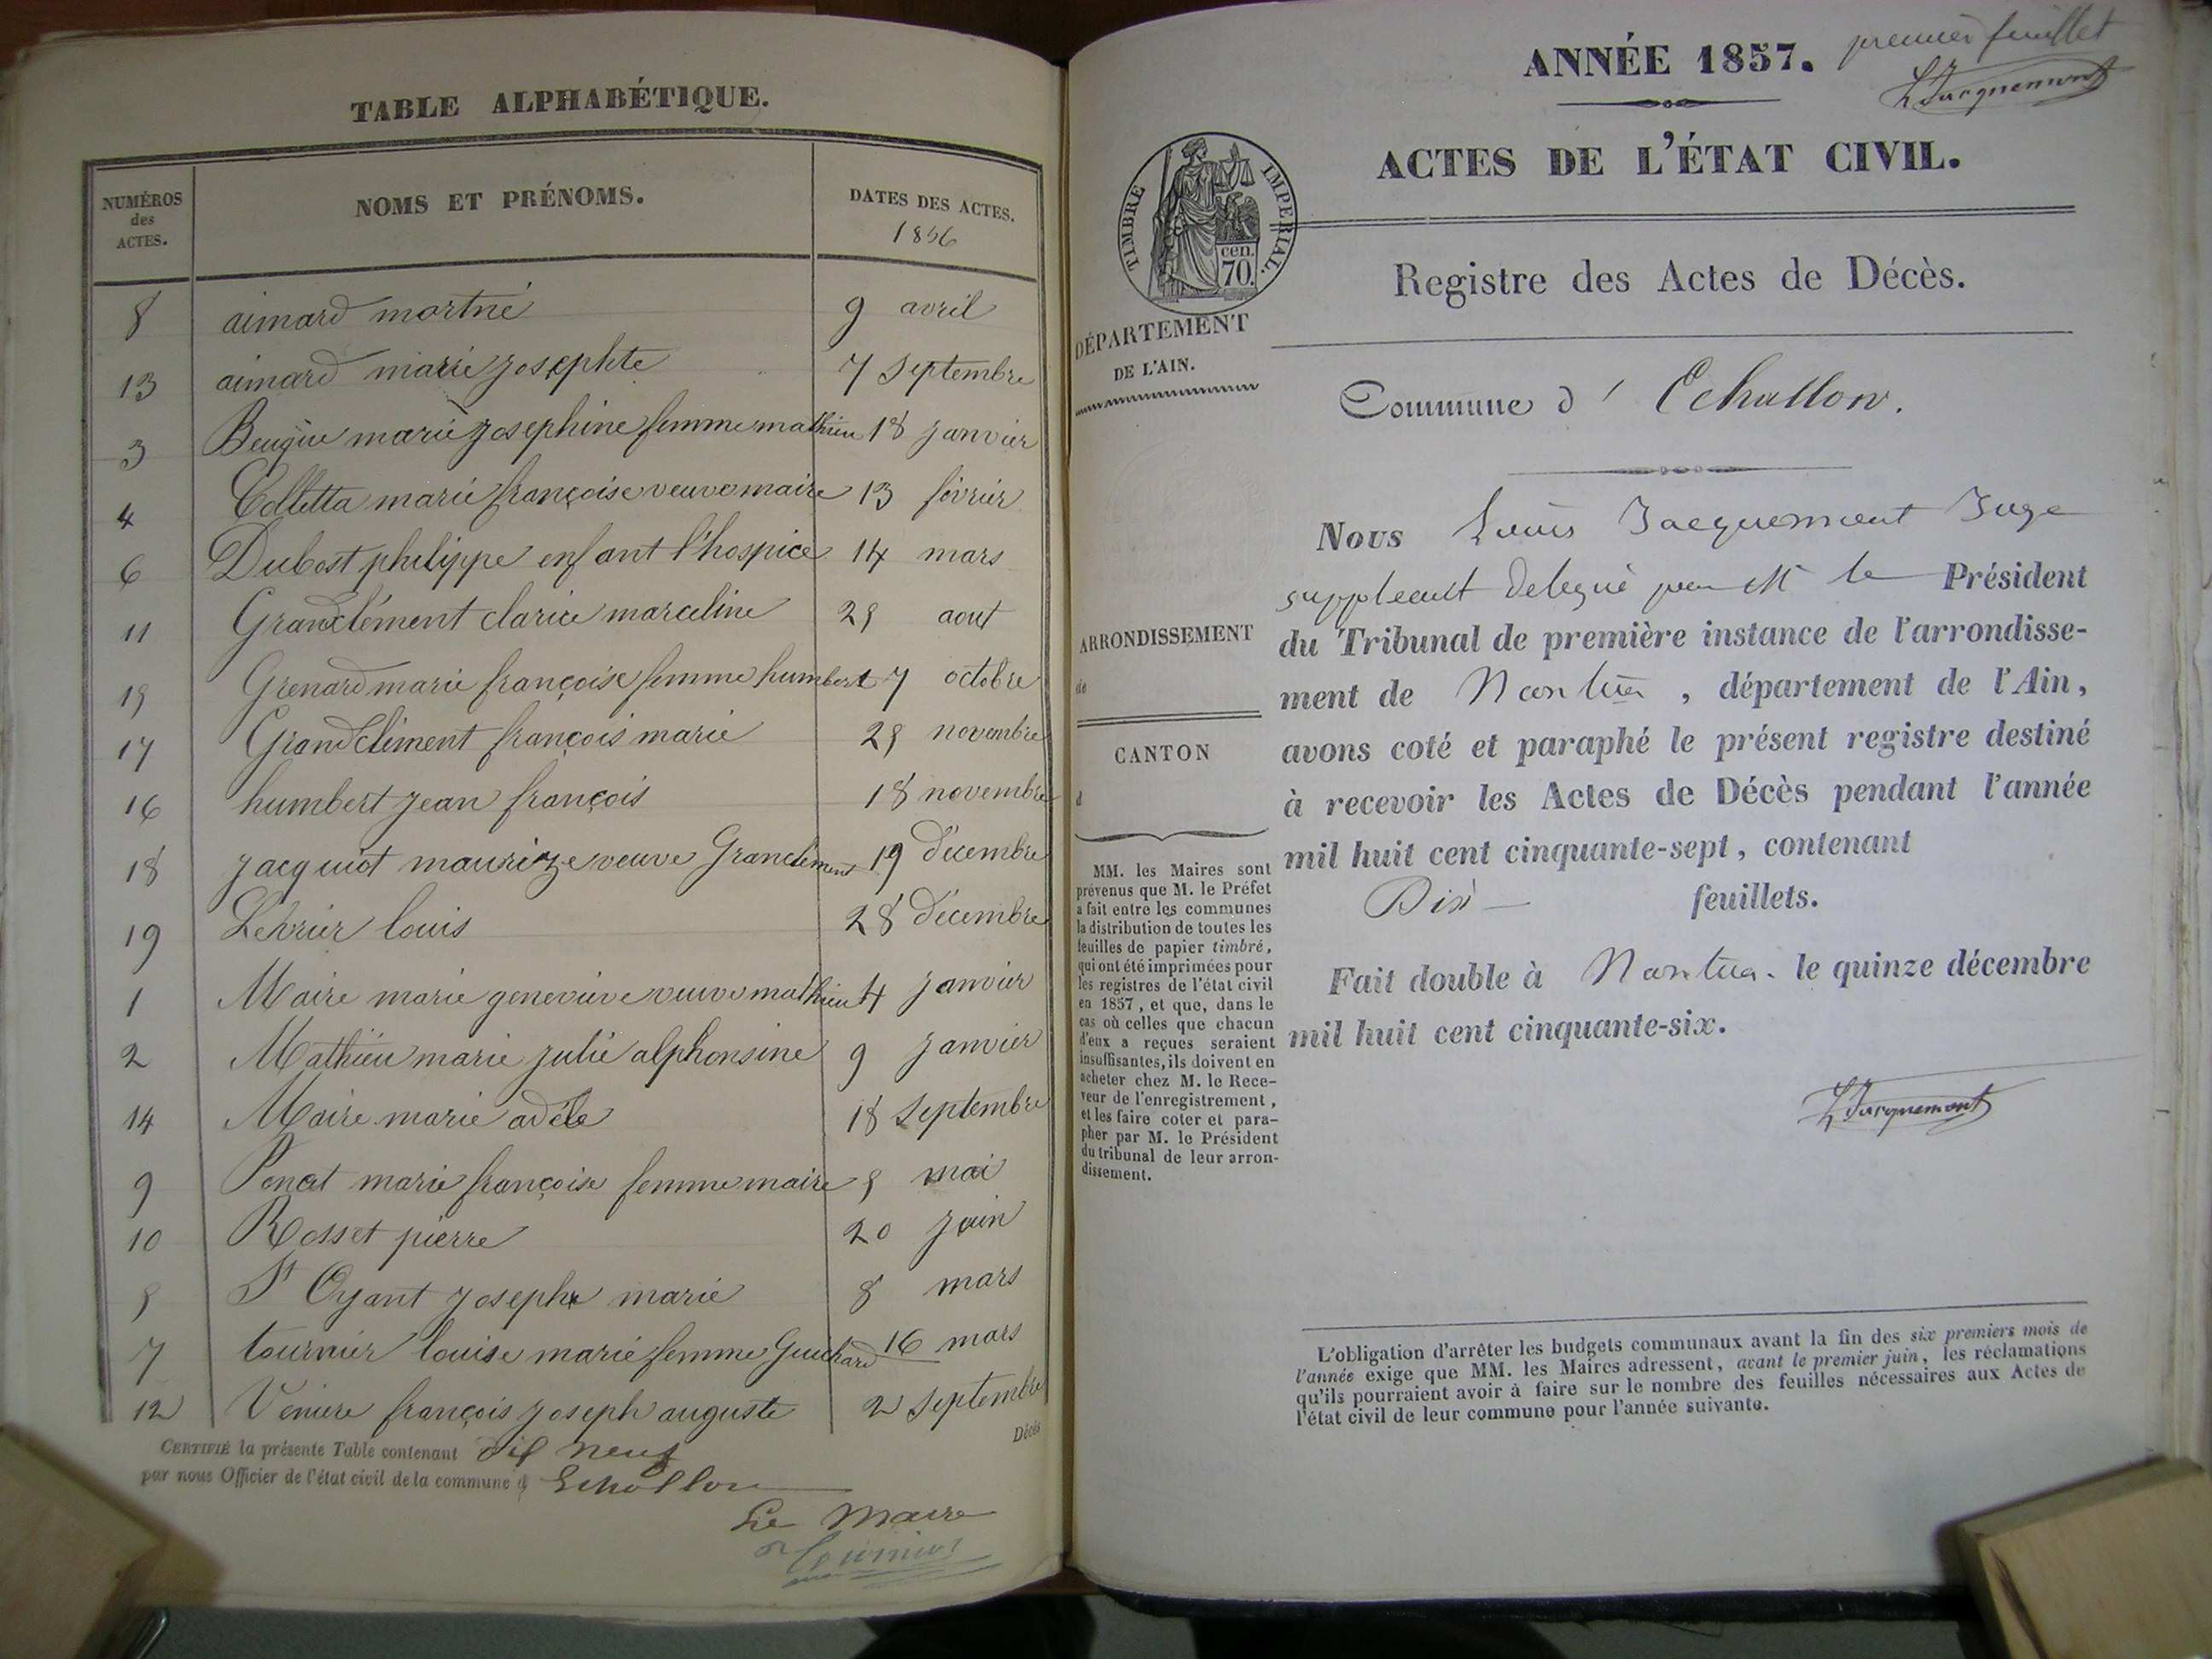 TABLE ALPHABÉTIQUE.
NUMÉROS des ACTES.
NOMS ET PRÉNOMS.
DATES DES ACTES.
1856
8 aimard mortné 9 avril
13 aimard marie josephte 7 septembre
3 Beugue marie josephine femme mathieu 18 janvier
4 Colletta marie françoise veuve maire 13 février
6 Dubost philippe enfant l'hospice 14 mars
11 Grandclément clarice marceline 25 aout
15 Grenard marie françoise femme humbert 7 octobre
17 Grandclément françois marie 25 novembre
16 humbert jean françois 18 novembre
18 jacquiot maurize veuve Granclément 19 décembre
19 louis 28 décembre
1 Maire marie genevieve veuve mathieu 4 janvier
2 Mathieu marie julie alphonsine 9 janvier
14 Maire marie adèle 18 septembre
9 Poncet marie françoise femme maire 5 mai
10 Rosset pierre 20 juin
5 St Oyant joseph marie 8 mars
7 tournier louise marie femme Guichard 16 mars
12 françois joseph auguste 2 septembre
Décès
CERTIFIÉ la présente Table contenant dix neuf
par nous Officier de l'état civil de la commune d Echallon
Le Maire
Tournier
ANNÉE 1857. premier feuillet
LJacquemont
ACTES DE L'ÉTAT CIVIL.
TIMBRE IMPERIAL.
cen.
70.
Registre des Actes de Décès.
DÉPARTEMENT
DE L'AIN.
Commune d' Echallon.
Nous Louis Jacquemont Juge
suppleant delegué par M le Président
du Tribunal de première instance de l'arrondisse-
ment de Nantua, département de l'Ain,
avons coté et paraphé le présent registre destiné
à recevoir les Actes de Décès pendant l'année
mil huit cent cinquante-sept, contenant
Dix feuillets.
Fait double à Nantua. le quinze décembre
mil huit cent cinquante-six.
LJacquemont
ARRONDISSEMENT
de
CANTON
d
MM. les Maires sont
prévenus que M. le Préfet
a fait entre les communes
la distribution de toutes les
feuilles de papier timbré,
qui ont été imprimées pour
les registres de l'état civil
en 1857, et que, dans le
cas où celles que chacun
d'eux a reçues seraient
insuffisantes, ils doivent en
acheter chez M. le Rece-
veur de l'enregistrement,
et les faire coter et para-
pher par M. le Président
du tribunal de leur arron-
dissement.
L'obligation d'arrêter les budgets communaux avant la fin des six premiers mois de
l'année exige que MM. les Maires adressent, avant le premier juin, les réclamations
qu'ils pourraient avoir à faire sur le nombre des feuilles nécessaires aux Actes de
l'état civil de leur commune pour l'année suivante.